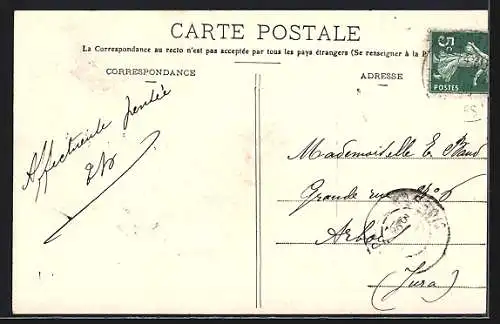 CARTE POSTALE
La Correspondance au recto n'est pas acceptée par tous les pays étrangers (Se renseigner à la
CORRESPONDANCE
ADRESSE
5c
POSTES
Affectueuse pensée
Mademoiselle E.
Grande rue N° 6
Arbois
(Jura)